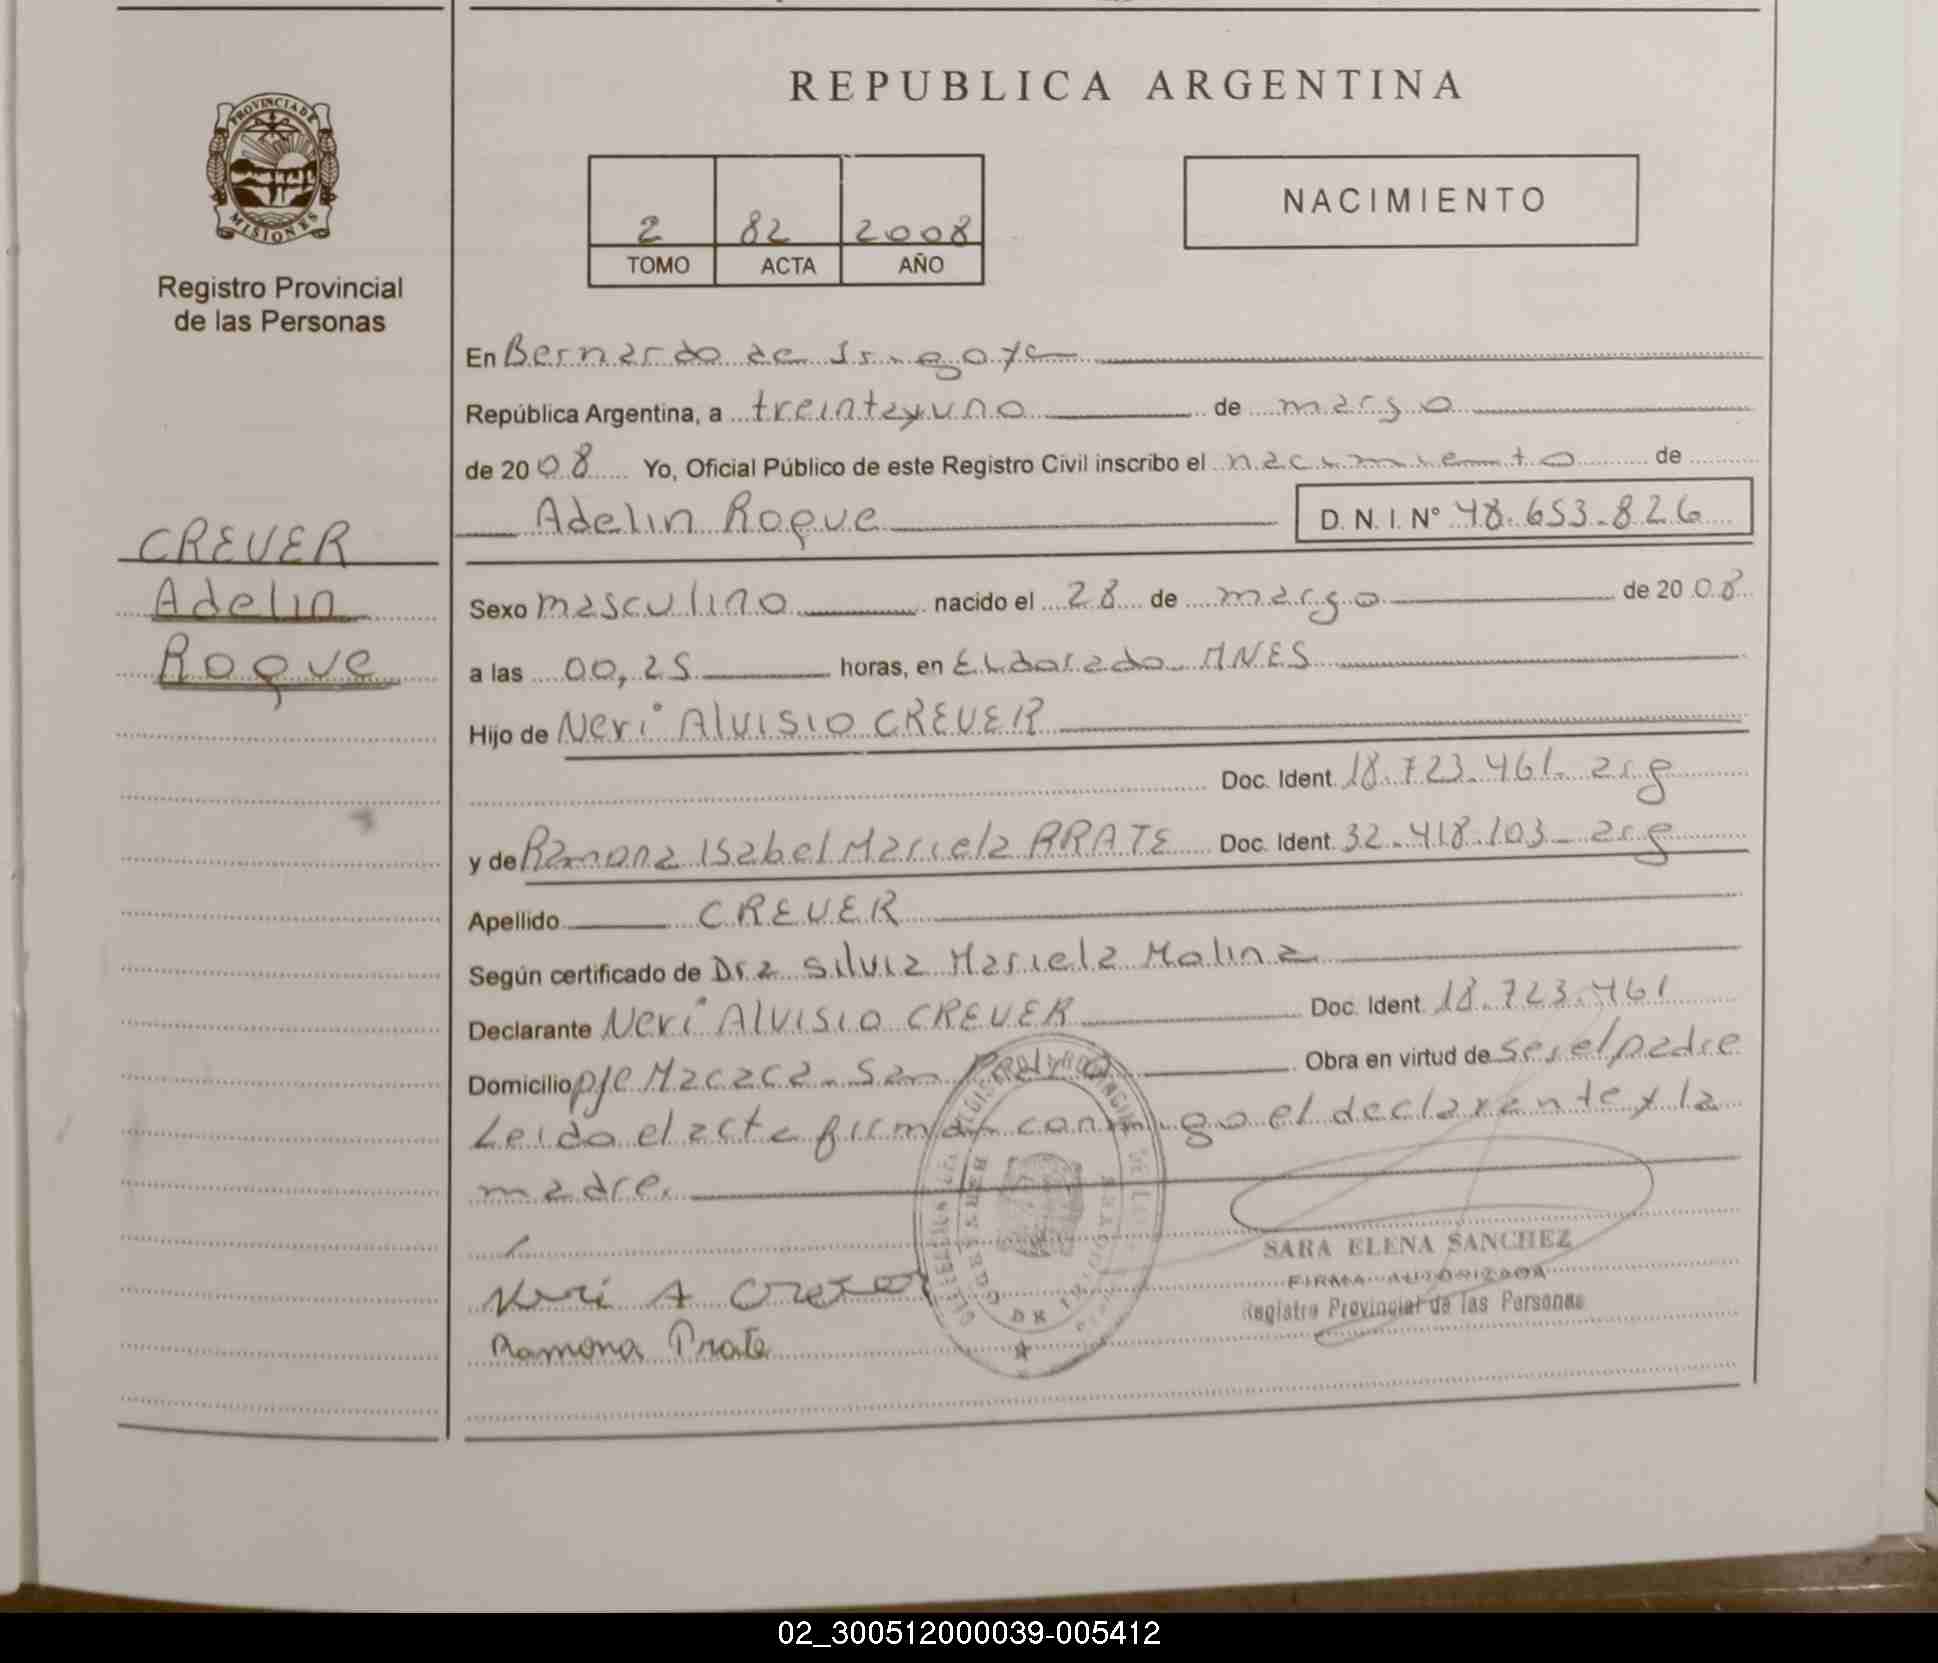 REPUBLICA ARGENTINA
PROVINCIA DE
MISIONES
Registro Provincial
de las Personas
2 82 2008
TOMO ACTA AÑO
NACIMIENTO
En Bernardo de Irigoyen
República Argentina, a treintayuno de marzo
de 2008 Yo, Oficial Público de este Registro Civil inscribo el nacimiento de
Adelin Roque D.N.I. Nº 48.653.826
CREVER
Adelin
Roque
Sexo masculino nacido el 28 de marzo de 2008
a las 00,25 horas, en Eldorado MNES
Hijo de Neri Alvisio CREVER
Doc. Ident. 18.723.461. arg
y de Ramona Isabel Mariela PRATE Doc. Ident. 32.418.103 arg
Apellido CREVER
Según certificado de Dra Silvia Mariela Molina
Declarante Neri Alvisio CREVER Doc. Ident. 18.723.461
Domicilio pje Macaca. San Obra en virtud de ser el padre
Leido el acta firman conmigo el declarante y la
madre.
Neri A Crever
Ramona Prate
SARA ELENA SANCHEZ
FIRMA AUTORIZADA
Registro Provincial de las Personas
02_300512000039-005412